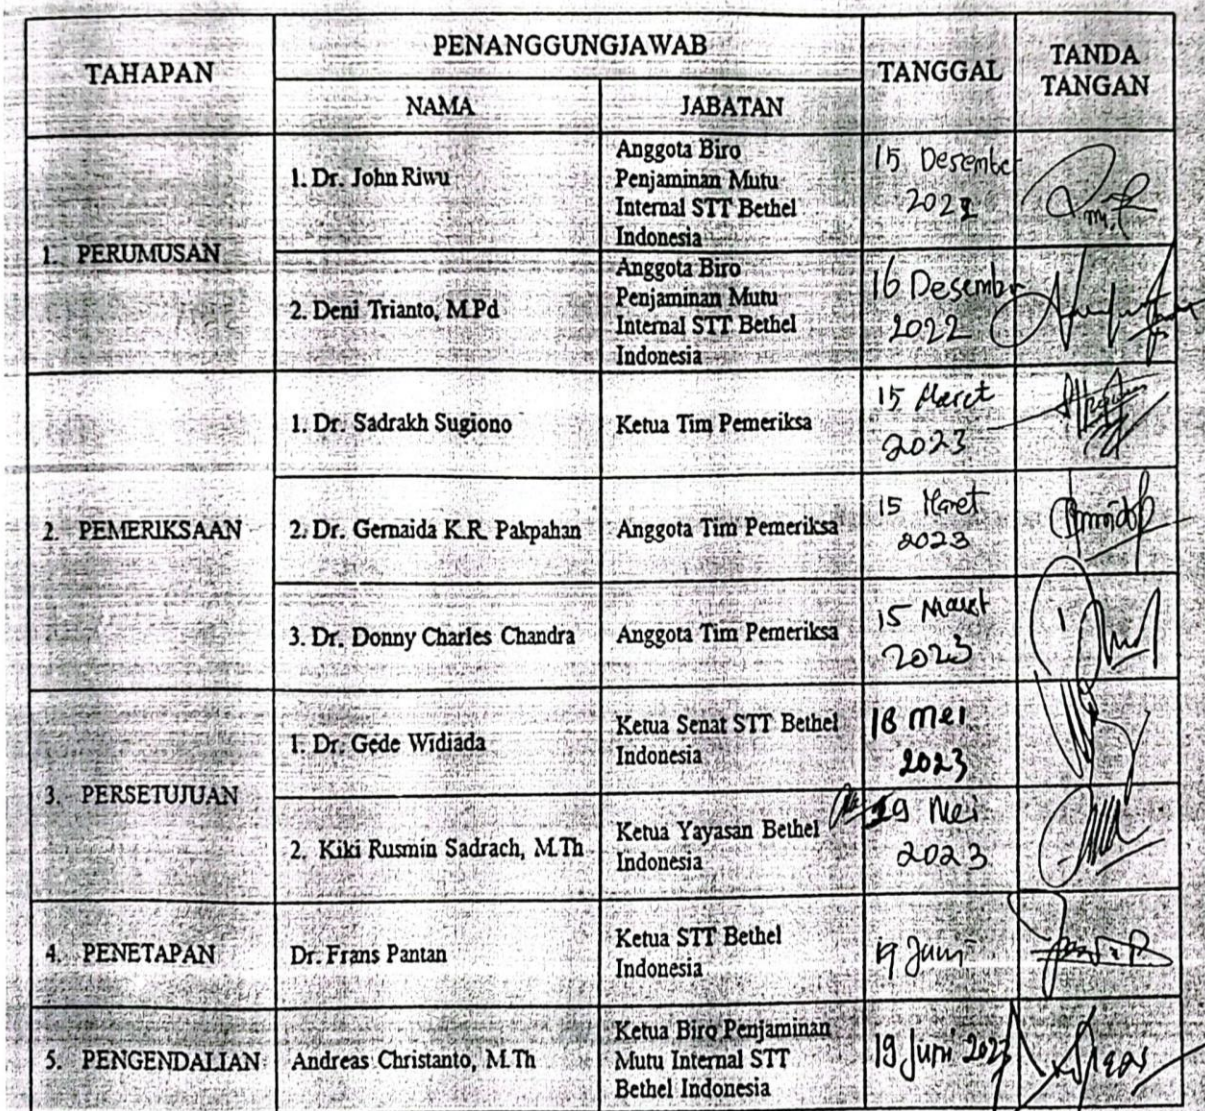 TAHAPAN
PENANGGUNGJAWAB
TANGGAL
TANDA
TANGAN
NAMA
JABATAN
1. PERUMUSAN
1. Dr. John Riwu
Anggota Biro
Penjaminan Mutu
Internal STT Bethel
Indonesia
15 Desembe
2022
2. Deni Trianto, M.Pd
Anggota Biro
Penjaminan Mutu
Internal STT Bethel
Indonesia
16 Desembr
2022
2. PEMERIKSAAN
1. Dr. Sadrakh Sugiono
Ketua Tim Pemeriksa
15 Maret
2023
2. Dr. Gernaida K.R. Pakpahan
Anggota Tim Pemeriksa
15 Maret
2023
3. Dr. Donny Charles Chandra
Anggota Tim Pemeriksa
15 Maret
2023
3. PERSETUJUAN
1. Dr. Gede Widiada
Ketua Senat STT Bethel
Indonesia
18 Mei
2023
2. Kiki Rusmin Sadrach, M.Th
Ketua Yayasan Bethel
Indonesia
29 Mei
2023
4. PENETAPAN
Dr. Frans Pantan
Ketua STT Bethel
Indonesia
19 Juni
5. PENGENDALIAN
Andreas Christanto, M.Th
Ketua Biro Penjaminan
Mutu Internal STT
Bethel Indonesia
19 Juni 2023